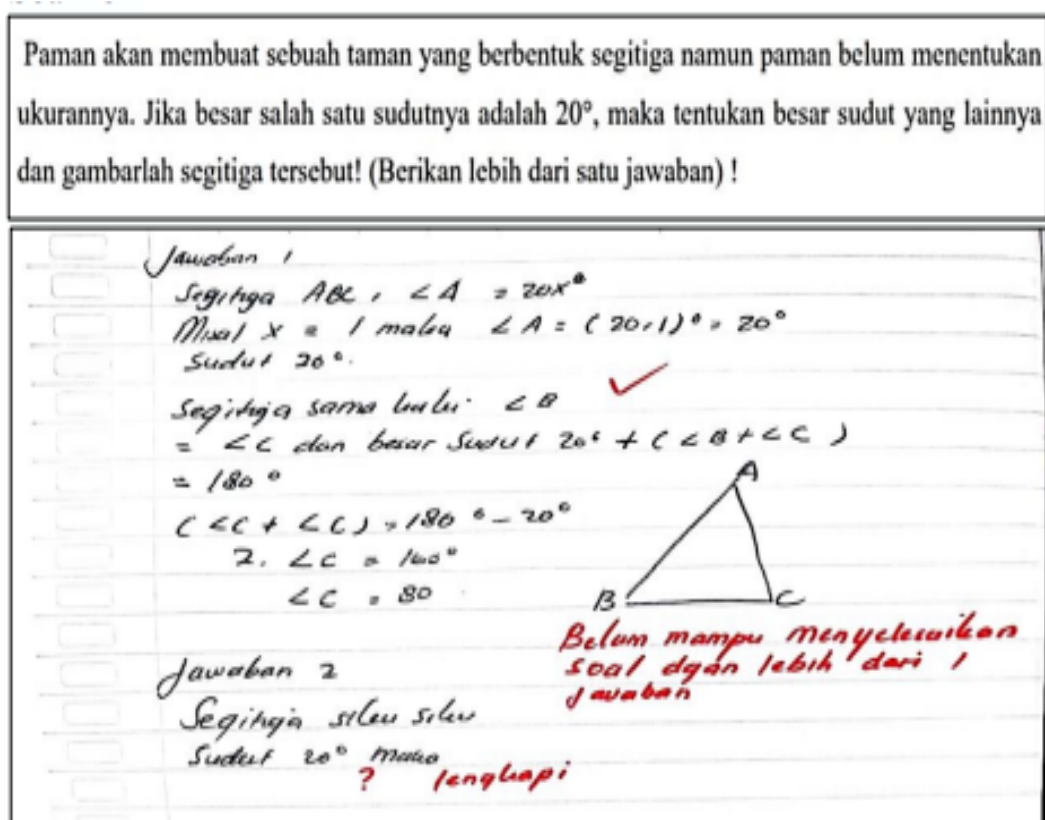 Paman akan membuat sebuah taman yang berbentuk segitiga namun paman belum menentukan
ukurannya. Jika besar salah satu sudutnya adalah 20°, maka tentukan besar sudut yang lainnya
dan gambarlah segitiga tersebut! (Berikan lebih dari satu jawaban) !
Jawaban 1
Segitiga ABC, <A = 20x°
Misal x = 1 maka <A = (20.1)° = 20°
Sudut 20°.
Segitiga sama kaki <B
= <C dan besar sudut 20° + (<B+<C)
= 180°
(<C + <C) = 180° - 20°
2. <C = 160°
<C = 80
A
B C
Belum mampu menyelesaikan
soal dgan lebih dari 1
jawaban
Jawaban 2
Segitiga siku siku
Sudut 20° maka
? lengkapi